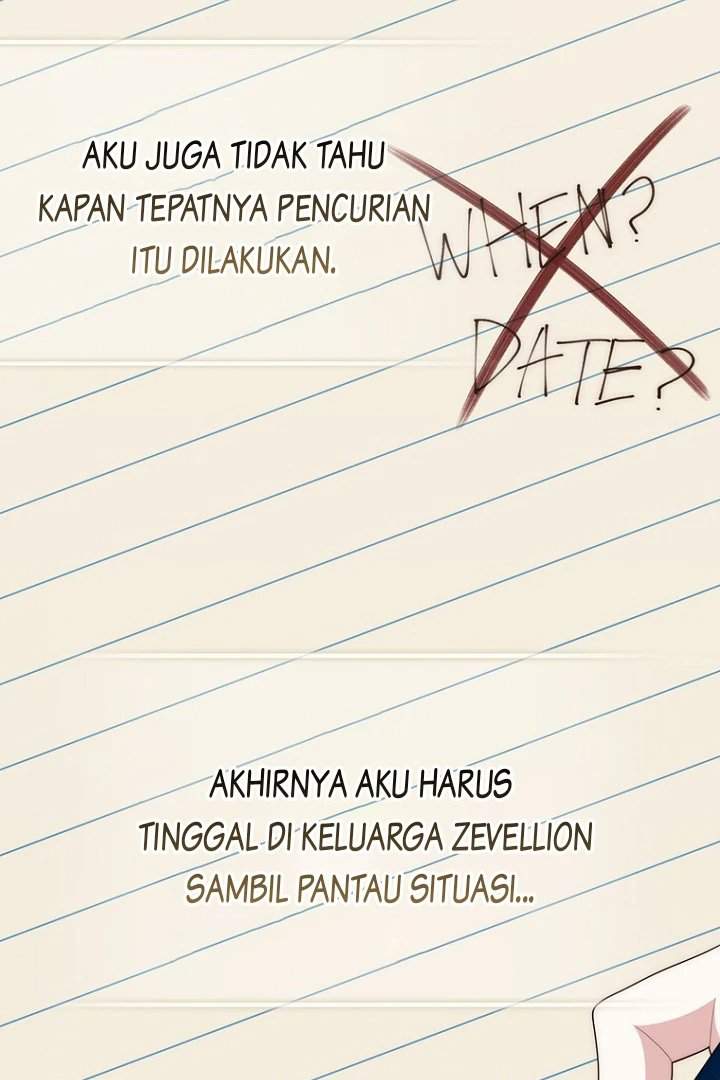 AKU JUGA TIDAK TAHU
KAPAN TEPATNYA PENCURIAN
ITU DILAKUKAN.
WHEN?
DATE?
AKHIRNYA AKU HARUS
TINGGAL DI KELUARGA ZEVELLION
SAMBIL PANTAU SITUASI...